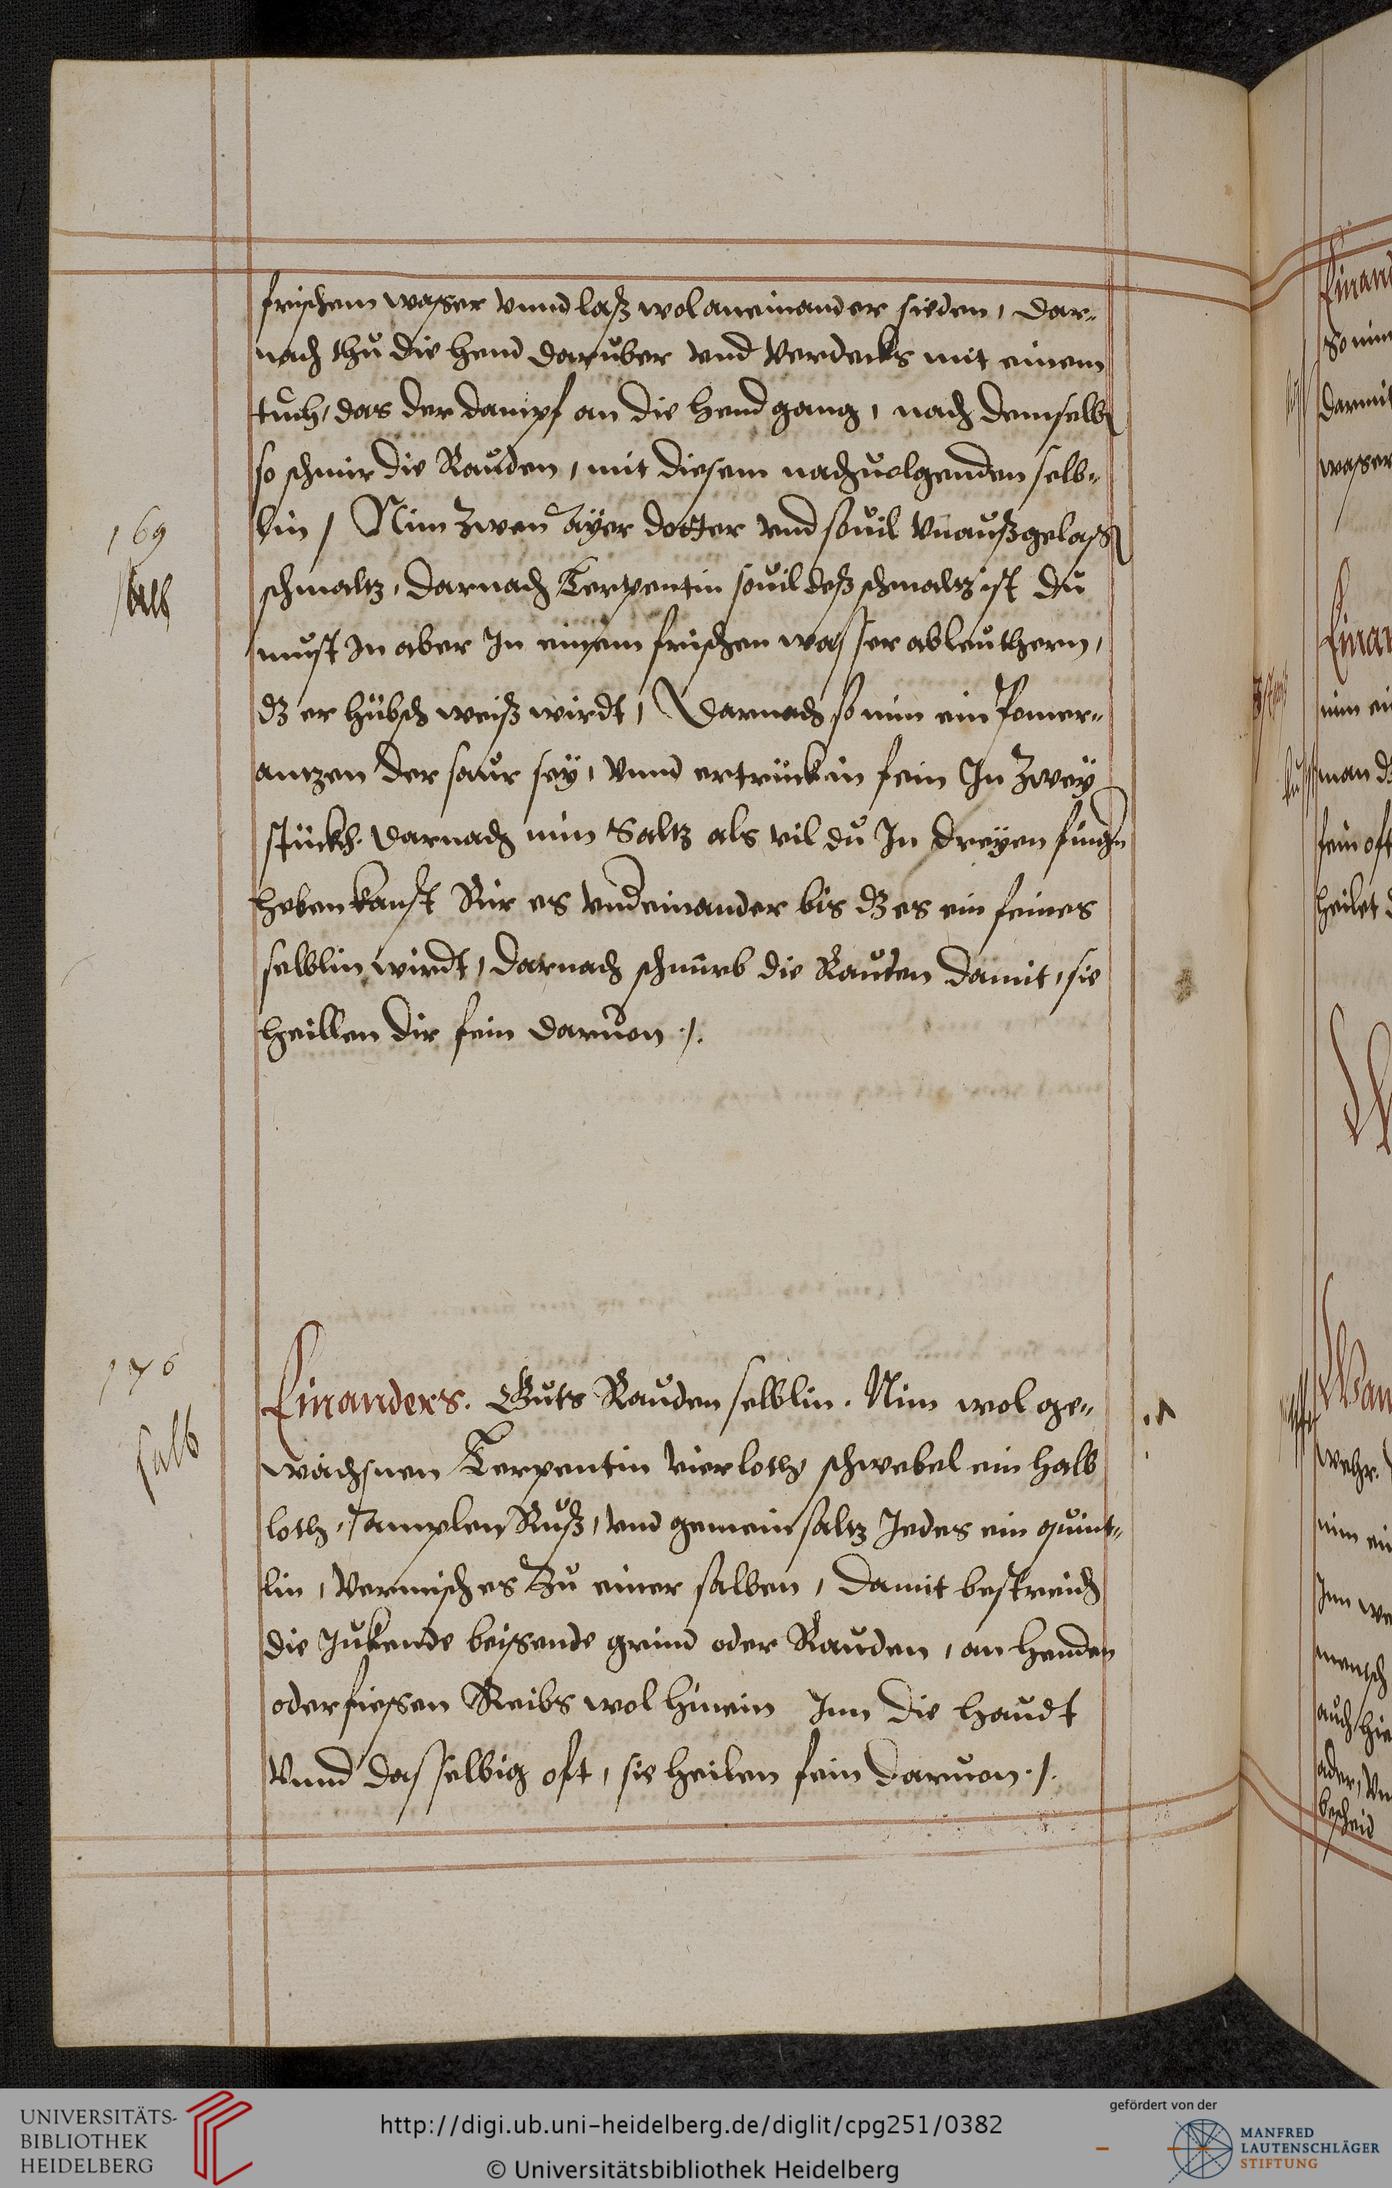 frischem wasser vnnd laß wol aneinander sieden, dar-
nach thů die hend darüber vnd verdecks mit einem
tůch, das der dampf an die hend gang, nach demselb
so schmir die Rauden, mit diesem nachuolgenden selb-
lin / Nim zwen Ayer dotter vnd souil vnaußgelaß
schmaltz, darnach Terpentin souil deß schmaltz ist du
must In aber In einem frischen wasser ableuthern,
dz er hübsch weiß wirdt, Darnach so nim ein Pomer-
antzen der saur sey, vnnd ertrück in fein In zwey
stückh. darnach nim Saltz als vil du In dreyen fingn
heben kanst Rür es vndeinander bis dz es ein feines
selblin wirdt, darnach schmirb die Rauden damit, sie
heillen dir fein daruon ./.
169
salb
Einanders. Guts Rauden selblin. Nim wol ge-
wächsnen Terpentin vier loth schwebel ein halb
loth, Tamplen Ruß, vnd gemein saltz Jedes ein quint-
lin, vermisch es zu einer salben, damit bestreich
die Juckende beissende grind oder Rauden, an henden
oder fiessen Reibs wol hinein Inn die haudt
vnnd dasselbig oft, sie heilen fein daruon ./.
170
salb
Einand
So nim
darmit
wasser
Einan
nim ein
man d
fein oft
heilet d
W
Wan
wehr.
nim ein
Inn we
mensch
auch hie
ader, vn
bescheid
UNIVERSITÄTS-
BIBLIOTHEK
HEIDELBERG
http://digi.ub.uni-heidelberg.de/diglit/cpg251/0382
© Universitätsbibliothek Heidelberg
gefördert von der
MANFRED
LAUTENSCHLÄGER
STIFTUNG